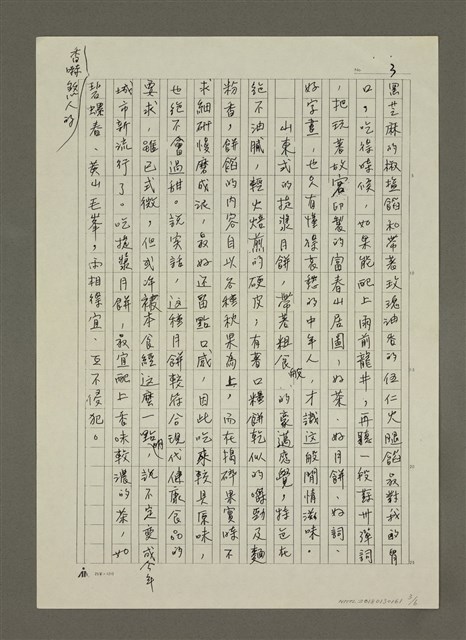 3
黑芝麻的椒鹽餡和帶著玫瑰油香的伍仁火腿餡最對我的胃
口，吃得時候，如果能配上雨前龍井，再聽一段蘇州彈詞
，把玩著故宮印製的富春山居圖，好茶、好月餅、好詞、
好字畫，也只有懂得哀愁的中年人，才識這般閒情滋味。
山東式的提漿月餅，帶著粗食般的豪邁感覺，特色在
絕不油膩，輕火焙煎的硬皮，有著口糧餅乾似的嚼勁及麵
粉香，餅餡的內容自以各種秋果為上，而在搗碎果實時不
求細研慢磨成泥，最好還留點口感，因此吃來較具原味，
也絕不會過甜。說實話，這種月餅較符合現代健康食品的
要求，雖已式微，但或許被本食經這麼一點明，說不定變成今年
城市新流行了。吃提漿月餅，最宜配上香味較濃的茶，如
香味懋人的
碧螺春、黃山毛峯，兩相得宜、互不侵犯。